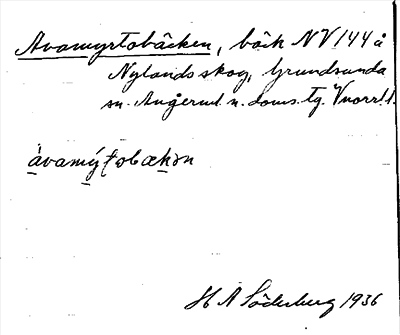 Avamyrtobäcken, bäck NV 144 å
Nylands skog, Grundsunda
sn. Ångerml. n. doms. tg. Vnorrl. l.
ávamýt̬obækən
H A Söderberg 1936